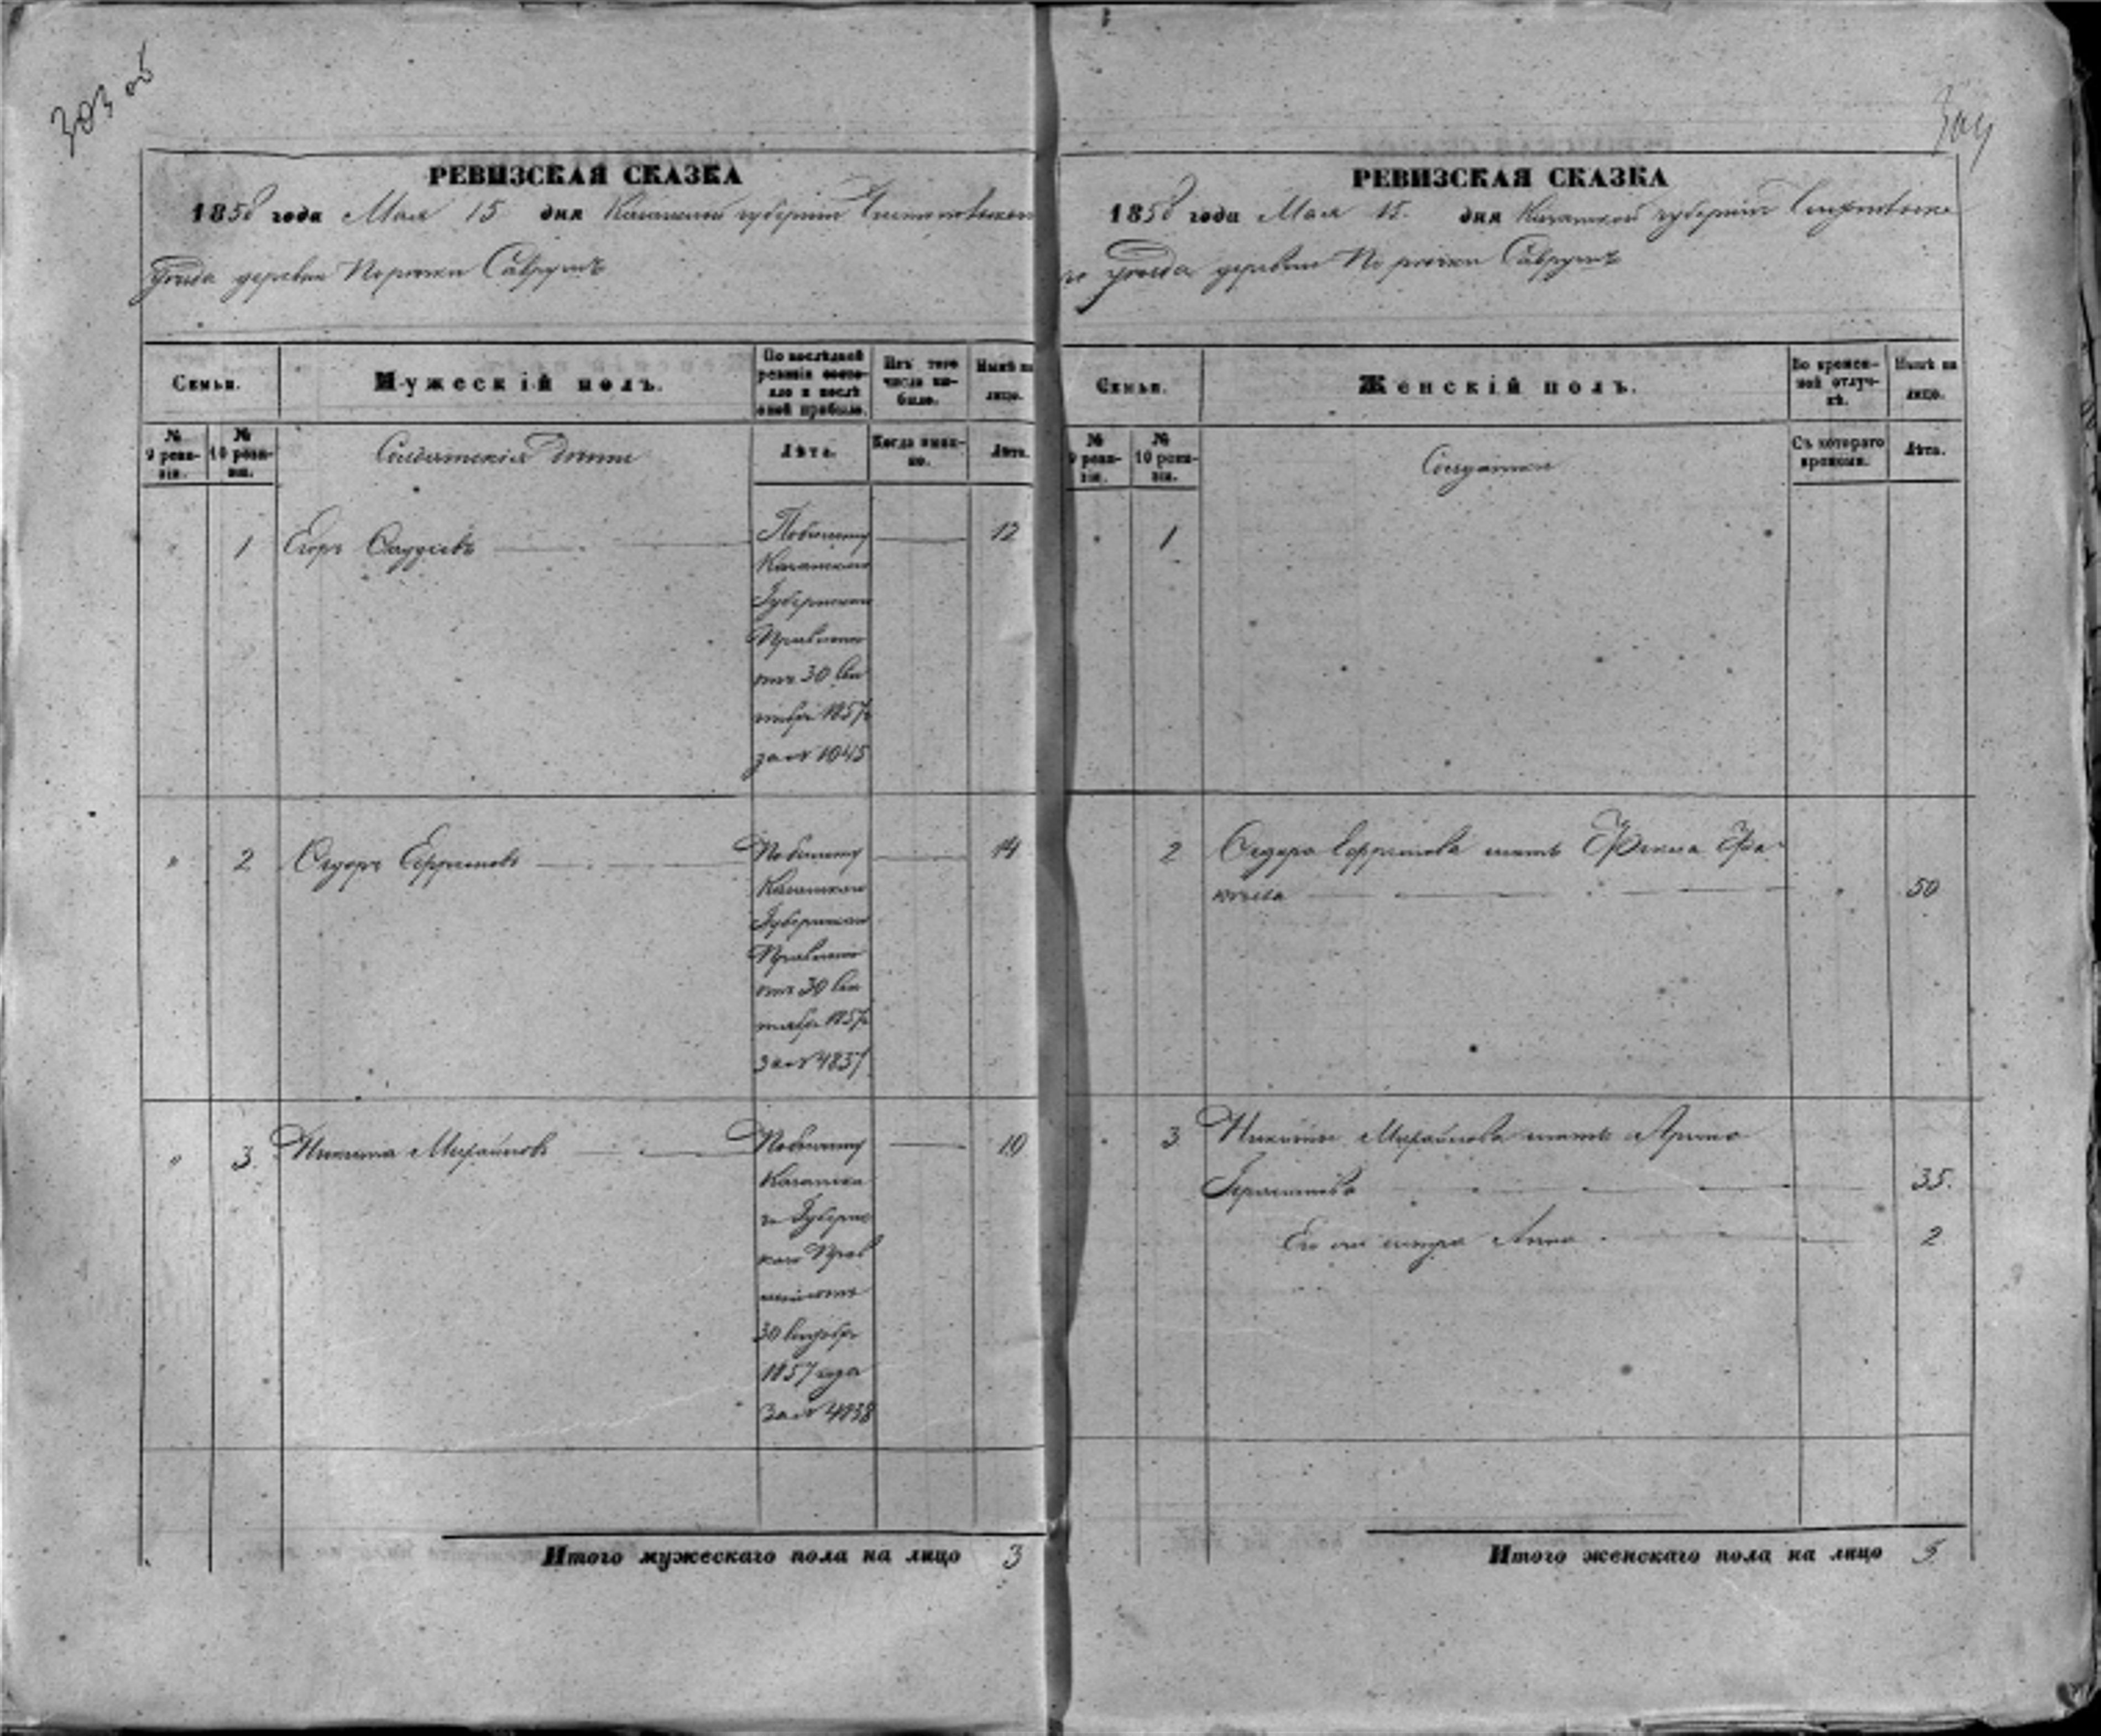 303 об
РЕВИЗСКАЯ СКАЗКА
1858 года Мая 15 дня Казанской губернiи Чистопольскаго
уѣзда деревни По рѣчки Саврушъ
Семьи.
Мужескiй полъ.
По послѣдней ревизiи состояло и послѣ оной прибыло.
Изъ того числа выбыло.
Нынѣ на лицо.
№ 9 ревизiи.
№ 10 ревизiи.
Солдатскiя Дѣти
Лѣта.
Когда именно.
Лѣта.
" 1 Егоръ 12
Казанскаго
Губернскаго
Правленiя
отъ 30 Сен
тября 1857
за № 1045
" 2 Сидоръ Ефремовъ 14
Казанскаго
Губернскаго
Правленiя
отъ 30 Сен
тября 1857
за № 4837
" 3. Никита Михайловъ 10
Казанска
го Губернс
каго Прав
ленiя отъ
30 Сентября
1857 года
за № 4838
Итого мужескаго пола на лицо 3
304
РЕВИЗСКАЯ СКАЗКА
1858 года Мая 15. дня Казанской губернiи Чистопольска
го уѣзда деревни По рѣчки Саврушъ
Семьи.
Женскiй полъ.
Во временной отлучкѣ.
Нынѣ на лицо.
№ 9 ревизiи.
№ 10 ревизiи.
Солдатки
Съ котораго времени.
Лѣта.
" 1
2 Сидора Ефремова мать Фекла
" 50
" 3 Никиты Михайлова мать Арина
Герасимова 35.
Его же сестра Анна 2
Итого женскаго пола на лицо 3